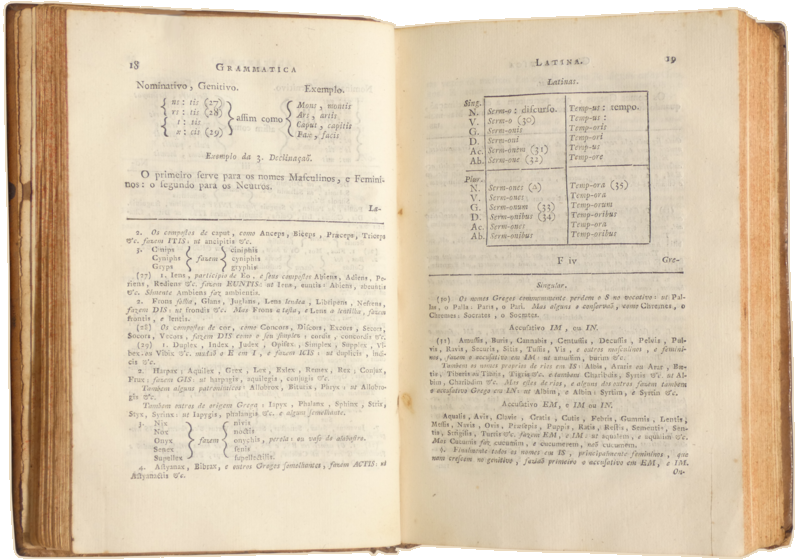 18 GRAMMATICA
Nominativo, Genitivo. Exemplo.
ns: tis (27) Mons, montis
rs: tis (28) assim como Ars, artis
t: tis Caput, capitis
x: cis (29) Pax, pacis
Exemplo da 3. Declinaçaõ.
O primeiro serve para os nomes Masculinos, e Femini-
nos: o segundo para os Neutros.
La-
2. Os compostos de caput, como Anceps, Biceps, Præceps, Triceps
&c. fazem ITIS: ut ancipitis &c.
3. Cinips ciniphis
Cyniphs fazem cyniphis
Gryps gryphis
(27) 1. Iens, participio de Eo, e seus compostos Abiens, Adiens,
riens, Rediens &c. fazem EUNTIS: ut Iens, euntis: Abiens, abeuntis
&c. Sómente Ambiens faz ambientis.
2. Frons folha, Glans, Juglans, Lens lendea, Libripens, Nefrens,
fazem DIS: ut frondis &c. Mas Frons a testa, e Lens a lentilha, fazem
frontis, e lentis.
(28) Os compostos de cor, como Concors, Discors, Excors, Secors,
Socors, Vecors, fazem DIS como o seu simples: cordis, concordis &c.
(29) 1. Duplex, Index, Judex, Opifex, Simplex, Supplex,
bex, ou Vibix &c. mudaõ o E em I, e fazem ICIS: ut duplicis, indi-
cis &c.
2. Harpax, Aquilex, Grex, Lex, Exlex, Remex, Rex, Conjux,
Frux: fazem GIS: ut harpagis, aquilegis, conjugis &c.
Tambem alguns patronimicos: Allobrox, Biturix, Phryx: ut Allobro-
gis &c.
Tambem outros de origem Grega: Iapyx, Phalanx, Sphinx, Strix,
Styx, Syrinx: ut Iapygis, phalangis &c. e alguns semelhantes.
3. Nix nivis
Nox noctis
Onyx fazem onychis, pedra: ou vaso de alabastro.
Senex senis
Supellex supellectilis.
4. Astyanax, Bibrax, e outros Gregos semelhantes, fazem ACTIS: ut
Astyanactis &c.
LATINA. 19
Latinas.
Sing.
N. Serm-o: discurso. Temp-us: tempo.
V. Serm-o (30) Temp-us:
G. Serm-onis Temp-oris
D. Serm-oni Temp-ori
Ac. Serm-onem (31) Temp-us
Ab. Serm-one (32) Temp-ore
Plur.
N. Serm-ones Temp-ora (35)
V. Serm-ones Temp-ora
G. Serm-onum (33) Temp-orum
D. Serm-onibus (34) Temp-oribus
Ac. Serm-ones Temp-ora
Ab. Serm-onibus Temp-oribus
F iv Gre-
Singular.
(30) Os nomes Gregos commummente perdem o S no vocativo: ut Pal-
las, o Palla: Paris, o Pari. Mas alguns o conservaõ, como Chremes, o
Chremes: Socrates, o Socrates.
Accusativo IM, ou IN.
(31) Amussis, Buris, Cannabis, Centussis, Decussis, Pelvis,
vis, Ravis, Securis, Sitis, Tussis, Vis, e outros masculinos, e femini-
nos, fazem o accusativo em IM: ut amussim, burim &c.
Tambem os nomes proprios de rios em IS: Albis, Araris ou Arar,
tis, Tiberis ou Tibris, Tigris &c. e tambem Charibdis, Syrtis &c. ut Al-
bim, Charibdim &c. Mas estes de rios, e alguns dos outros fazem tambem
o accusativo Grego em IN: ut Albim, e Albin: Syrtim, e Syrtin &c.
Accusativo EM, e IM ou IN.
Aqualis, Axis, Clavis, Cratis, Cutis, Febris, Gummis, Lentis,
Messis, Navis, Ovis, Præsepis, Puppis, Ratis, Restis, Sementis, Sen-
tis, Strigilis, Turris &c. fazem EM, e IM: ut aqualem, e aqualim &c.
Mas Cucumis faz cucumim, e cucumerem, naõ cucumem.
Finalmente todos os nomes em IS, principalmente femininos, que
nam crescem no genitivo, faziaõ primeiro o accusativo em EM, e IM.
Ou-